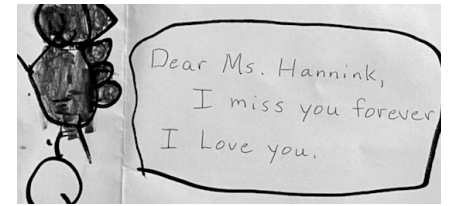 Dear Ms. Hannink,
I miss you forever
I Love you.